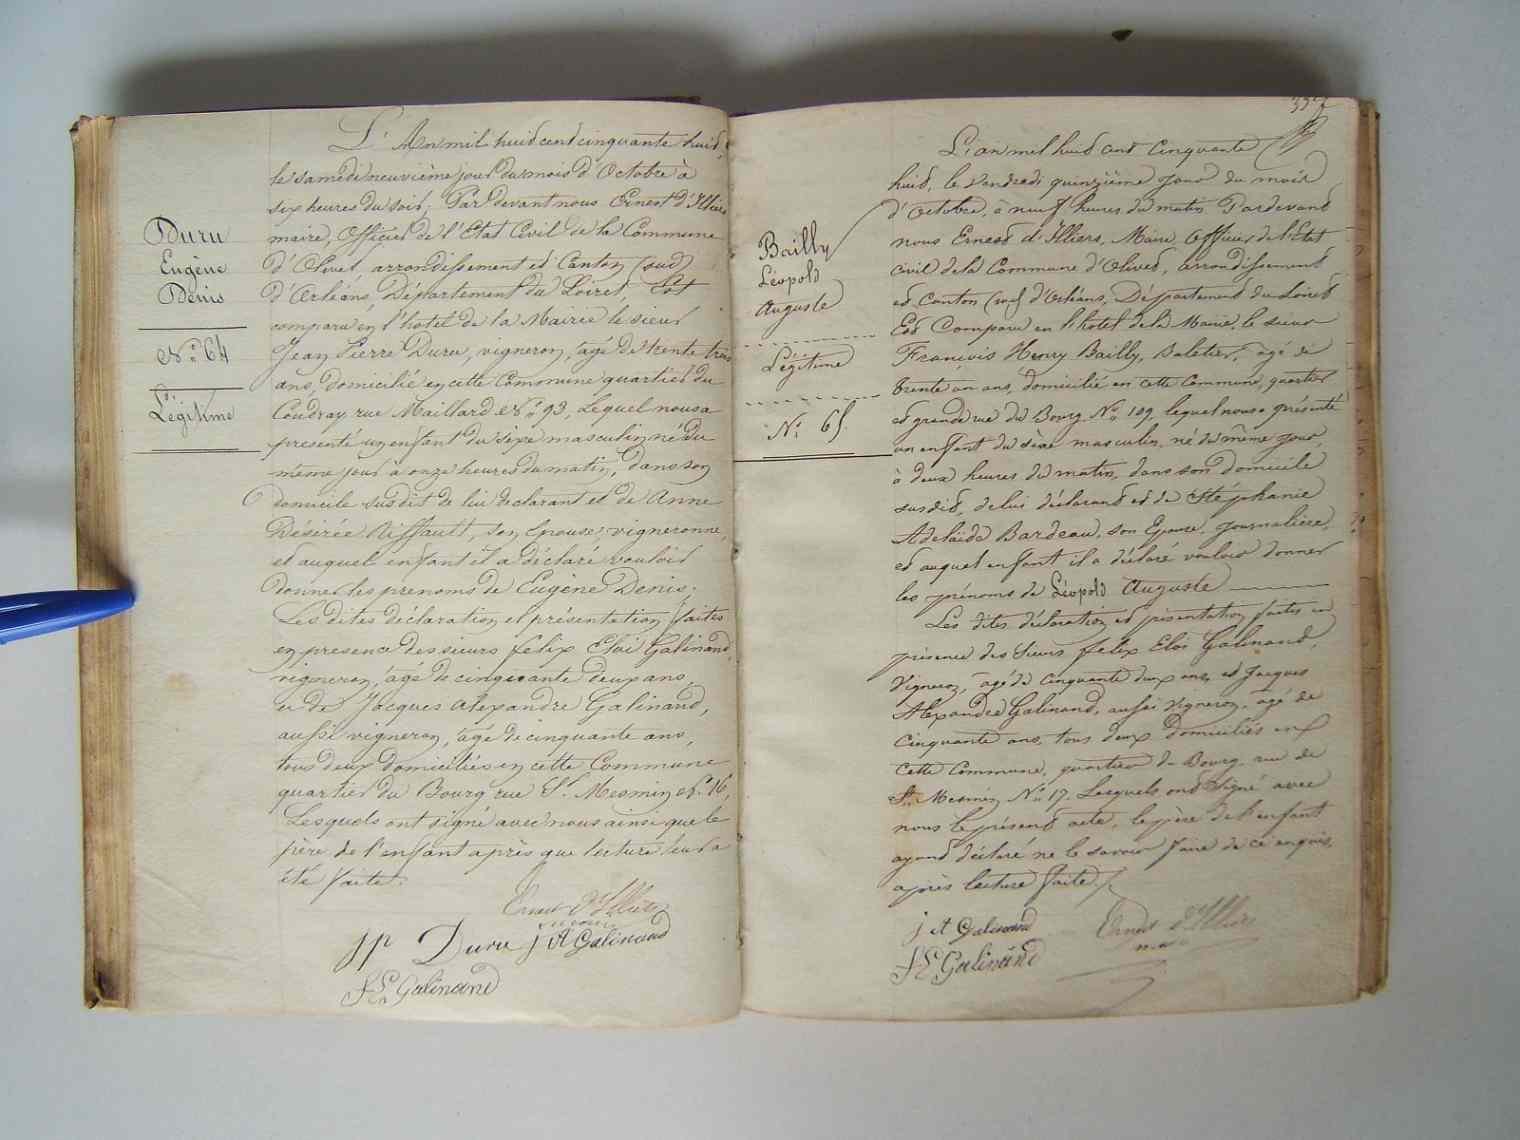 Duru
Eugène
Denis
N.o 64
Légitime
L'An mil huit cent cinquante huit,
le samedi neuvième jour du mois d'Octobre à
six heures du soir; Par devant nous Ernest d'Illiers
maire, Officier de l'Etat Civil de la Commune
d'Olivet, arrondissement et Canton (sud)
d'Orléans, Département du Loiret, Est
comparu en l'hotel de la Mairie le sieur
Jean Pierre Duru, vigneron, âgé de trente trois
ans, domicilié en cette Commune quartier du
Coudray rue Maillard N.o 93, Lequel nous a
présenté un enfant du sexe masculin né du
même jour à onze heures du matin, dans son
domicile susdit de lui déclarant et de Anne
Désirée Riffault, son épouse, vigneronne,
et auquel enfant il a déclaré vouloir
donner les prenoms de Eugène Denis;
Les dites déclaration et présentation faites
en presence des sieurs felix Eloi Galinand,
vigneron, âgé de cinquante deux ans,
et de Jacques alexandre Galinand,
aussi vigneron, âgé de cinquante ans,
tous deux domiciliés en cette Commune
quartier du Bourg rue St. Mesmin N.o 16,
Lesquels ont signé avec nous ainsi que le
père de l'enfant après que lecture leur a
été faite.
Ernest d'Illiers
jp Duru j A Galinand
f E Galinand
337
Bailly
Léopold
Auguste
Légitime
N.o 65.
L'an mil huit cent cinquante
huit, le Vendredi quinzième jour du mois
d'Octobre, à neuf heures du matin Pardevant
nous Ernest d'Illiers, Maire, Officier de l'Etat
civil de la Commune d'Olivet, arrondissement
et Canton (sud) d'Orléans, Département du Loiret
Est Comparu en l'hotel de la Mairie, le sieur
François Henry Bailly, âgé de
trente un ans, domicilié en cette Commune, quartier
et grande rue du Bourg N.o 109, lequel nous a présenté
un enfant du sexe masculin, né du même jour,
à deux heures du matin, dans son domicile
susdit, de lui déclarant et de Stéphanie
Adelaïde Bardeau, son Epouse, journalière,
et auquel enfant il a déclaré vouloir donner
les prénoms de Léopold Auguste
Les dites déclaration et présentation faites en
présence des Sieurs felix Eloi Galinand,
Vigneron, âgé de cinquante deux ans, et Jacques
Alexandre Galinand, aussi Vigneron, âgé de
Cinquante ans, tous deux domiciliés en
cette Commune, quartier du Bourg, rue de
St. Mesmin N.o 17. Lesquels ont Signé avec
nous le présent acte, le père de l'enfant
ayant déclaré ne le savoir faire de ce enquis,
après lecture faite.
j A Galinand Ernest d'Illiers
f E Galinand